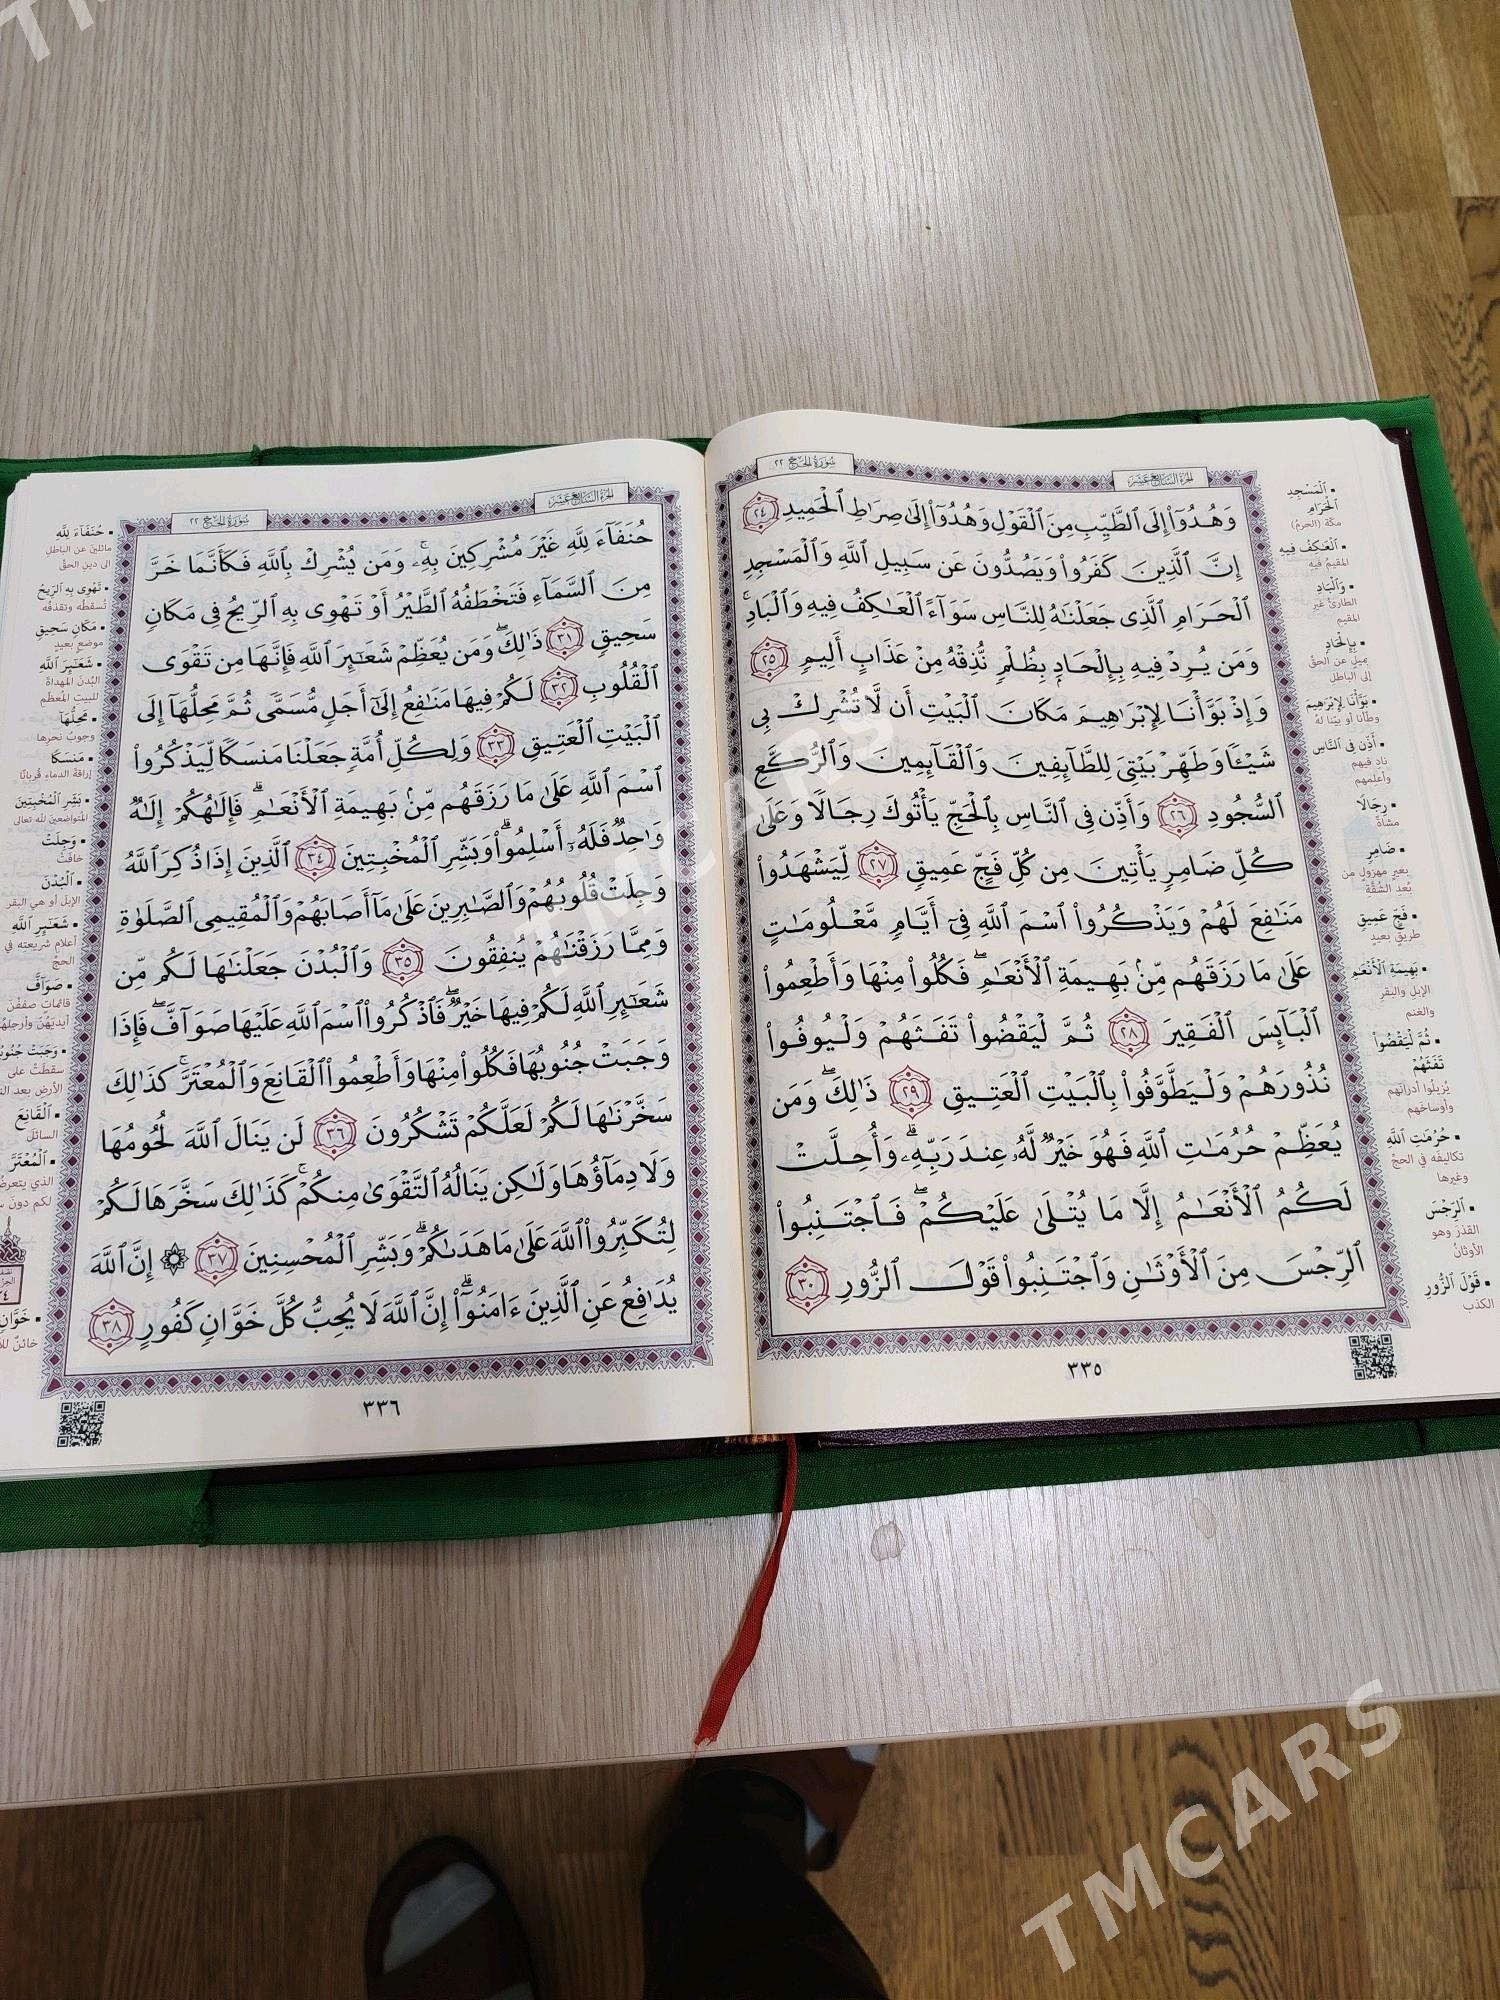 سُورَةُ الحَجّ ٢٢
الجُزءُ السَّابِعَ عَشَرَ
وَهُدُوٓا۟ إِلَى ٱلطَّيِّبِ مِنَ ٱلْقَوْلِ وَهُدُوٓا۟ إِلَىٰ صِرَٰطِ ٱلْحَمِيدِ ٢٤
إِنَّ ٱلَّذِينَ كَفَرُوا۟ وَيَصُدُّونَ عَن سَبِيلِ ٱللَّهِ وَٱلْمَسْجِدِ
ٱلْحَرَامِ ٱلَّذِى جَعَلْنَٰهُ لِلنَّاسِ سَوَآءً ٱلْعَٰكِفُ فِيهِ وَٱلْبَادِ ۚ
وَمَن يُرِدْ فِيهِ بِإِلْحَادٍۭ بِظُلْمٍ نُّذِقْهُ مِنْ عَذَابٍ أَلِيمٍ ٢٥
وَإِذْ بَوَّأْنَا لِإِبْرَٰهِيمَ مَكَانَ ٱلْبَيْتِ أَن لَّا تُشْرِكْ بِى
شَيْـًٔا وَطَهِّرْ بَيْتِىَ لِلطَّآئِفِينَ وَٱلْقَآئِمِينَ وَٱلرُّكَّعِ
ٱلسُّجُودِ ٢٦ وَأَذِّن فِى ٱلنَّاسِ بِٱلْحَجِّ يَأْتُوكَ رِجَالًا وَعَلَىٰ
كُلِّ ضَامِرٍ يَأْتِينَ مِن كُلِّ فَجٍّ عَمِيقٍ ٢٧ لِّيَشْهَدُوا۟
مَنَٰفِعَ لَهُمْ وَيَذْكُرُوا۟ ٱسْمَ ٱللَّهِ فِىٓ أَيَّامٍ مَّعْلُومَٰتٍ
عَلَىٰ مَا رَزَقَهُم مِّنۢ بَهِيمَةِ ٱلْأَنْعَٰمِ ۖ فَكُلُوا۟ مِنْهَا وَأَطْعِمُوا۟
ٱلْبَآئِسَ ٱلْفَقِيرَ ٢٨ ثُمَّ لْيَقْضُوا۟ تَفَثَهُمْ وَلْيُوفُوا۟
نُذُورَهُمْ وَلْيَطَّوَّفُوا۟ بِٱلْبَيْتِ ٱلْعَتِيقِ ٢٩ ذَٰلِكَ ۖ وَمَن
يُعَظِّمْ حُرُمَٰتِ ٱللَّهِ فَهُوَ خَيْرٌ لَّهُۥ عِندَ رَبِّهِۦ ۗ وَأُحِلَّتْ
لَكُمُ ٱلْأَنْعَٰمُ إِلَّا مَا يُتْلَىٰ عَلَيْكُمْ ۖ فَٱجْتَنِبُوا۟
ٱلرِّجْسَ مِنَ ٱلْأَوْثَٰنِ وَٱجْتَنِبُوا۟ قَوْلَ ٱلزُّورِ ٣٠
٣٣٥
▪ ٱلْمَسْجِدِ
ٱلْحَرَامِ
مكّة (الحرم)
▪ ٱلْعَٰكِفُ فِيهِ
المقيمُ فيه
▪ وَٱلْبَادِ
الطارئُ غير
المقيم
▪ بِإِلْحَادٍ
بميلٍ عن الحقّ
إلى الباطل
▪ بَوَّأْنَا لِإِبْرَٰهِيمَ
وطّأنا أو بيّنا لهُ
▪ أَذِّن فِى ٱلنَّاسِ
ناد فيهم
وأعلمهم
▪ رِجَالًا
مشاةً
▪ ضَامِرٍ
بعيرٍ مهزولٍ من
بُعد الشُّقَّة
▪ فَجٍّ عَمِيقٍ
طريقٍ بعيدٍ
▪ بَهِيمَةِ ٱلْأَنْعَٰمِ
الإبل والبقر
والغنم
▪ ثُمَّ لْيَقْضُوا۟
تَفَثَهُمْ
يُزيلُوا أدرانَهم
وأوساخَهم
▪ حُرُمَٰتِ ٱللَّهِ
تكاليفَه في الحجّ
وغيرها
▪ ٱلرِّجْسَ
القذرَ وهو
الأوثانُ
▪ قَوْلَ ٱلزُّورِ
الكذب
الجُزءُ السَّابِعَ عَشَرَ
سُورَةُ الحَجّ ٢٢
حُنَفَآءَ لِلَّهِ غَيْرَ مُشْرِكِينَ بِهِۦ ۚ وَمَن يُشْرِكْ بِٱللَّهِ فَكَأَنَّمَا خَرَّ
مِنَ ٱلسَّمَآءِ فَتَخْطَفُهُ ٱلطَّيْرُ أَوْ تَهْوِى بِهِ ٱلرِّيحُ فِى مَكَانٍ
سَحِيقٍ ٣١ ذَٰلِكَ ۖ وَمَن يُعَظِّمْ شَعَٰٓئِرَ ٱللَّهِ فَإِنَّهَا مِن تَقْوَى
ٱلْقُلُوبِ ٣٢ لَكُمْ فِيهَا مَنَٰفِعُ إِلَىٰٓ أَجَلٍ مُّسَمًّى ثُمَّ مَحِلُّهَآ إِلَى
ٱلْبَيْتِ ٱلْعَتِيقِ ٣٣ وَلِكُلِّ أُمَّةٍ جَعَلْنَا مَنسَكًا لِّيَذْكُرُوا۟
ٱسْمَ ٱللَّهِ عَلَىٰ مَا رَزَقَهُم مِّنۢ بَهِيمَةِ ٱلْأَنْعَٰمِ ۗ فَإِلَٰهُكُمْ إِلَٰهٌ
وَٰحِدٌ فَلَهُۥٓ أَسْلِمُوا۟ ۗ وَبَشِّرِ ٱلْمُخْبِتِينَ ٣٤ ٱلَّذِينَ إِذَا ذُكِرَ ٱللَّهُ
وَجِلَتْ قُلُوبُهُمْ وَٱلصَّٰبِرِينَ عَلَىٰ مَآ أَصَابَهُمْ وَٱلْمُقِيمِى ٱلصَّلَوٰةِ
وَمِمَّا رَزَقْنَٰهُمْ يُنفِقُونَ ٣٥ وَٱلْبُدْنَ جَعَلْنَٰهَا لَكُم مِّن
شَعَٰٓئِرِ ٱللَّهِ لَكُمْ فِيهَا خَيْرٌ ۖ فَٱذْكُرُوا۟ ٱسْمَ ٱللَّهِ عَلَيْهَا صَوَآفَّ ۖ فَإِذَا
وَجَبَتْ جُنُوبُهَا فَكُلُوا۟ مِنْهَا وَأَطْعِمُوا۟ ٱلْقَانِعَ وَٱلْمُعْتَرَّ ۚ كَذَٰلِكَ
سَخَّرْنَٰهَا لَكُمْ لَعَلَّكُمْ تَشْكُرُونَ ٣٦ لَن يَنَالَ ٱللَّهَ لُحُومُهَا
وَلَا دِمَآؤُهَا وَلَٰكِن يَنَالُهُ ٱلتَّقْوَىٰ مِنكُمْ ۚ كَذَٰلِكَ سَخَّرَهَا لَكُمْ
لِتُكَبِّرُوا۟ ٱللَّهَ عَلَىٰ مَا هَدَىٰكُمْ ۗ وَبَشِّرِ ٱلْمُحْسِنِينَ ٣٧ ۞ إِنَّ ٱللَّهَ
يُدَٰفِعُ عَنِ ٱلَّذِينَ ءَامَنُوٓا۟ ۗ إِنَّ ٱللَّهَ لَا يُحِبُّ كُلَّ خَوَّانٍ كَفُورٍ ٣٨
٣٣٦
▪ حُنَفَآءَ لِلَّهِ
مائلين عن الباطل
الى دين الحقّ
▪ تَهْوِى بِهِ ٱلرِّيحُ
تُسقطه وتقذفُه
▪ مَكَانٍ سَحِيقٍ
موضعٍ بعيدٍ
▪ شَعَٰٓئِرَ ٱللَّهِ
البُدنَ المُهداةَ
للبيت المُعظّم
▪ مَحِلُّهَآ
وجوبُ نحرها
▪ مَنسَكًا
إراقة الدماء قُربانًا
▪ بَشِّرِ ٱلْمُخْبِتِينَ
المتواضعين لله تعالى
▪ وَجِلَتْ
خافتْ
▪ ٱلْبُدْنَ
الإبل أو هي البقر
▪ شَعَٰٓئِرِ ٱللَّهِ
أعلام شريعته في
الحجّ
▪ صَوَآفَّ
قائمات صففْنَ
أيديَهُنّ وأرجلهُ
▪ وَجَبَتْ جُنُوبُ
سقطتْ على
الأرض بعد
▪ ٱلْقَانِعَ
السائلَ
▪ ٱلْمُعْتَرَّ
الذي يتعرض
لكم دون
▪ خَوَّانٍ
خائنٍ
TMCARS
TMCARS